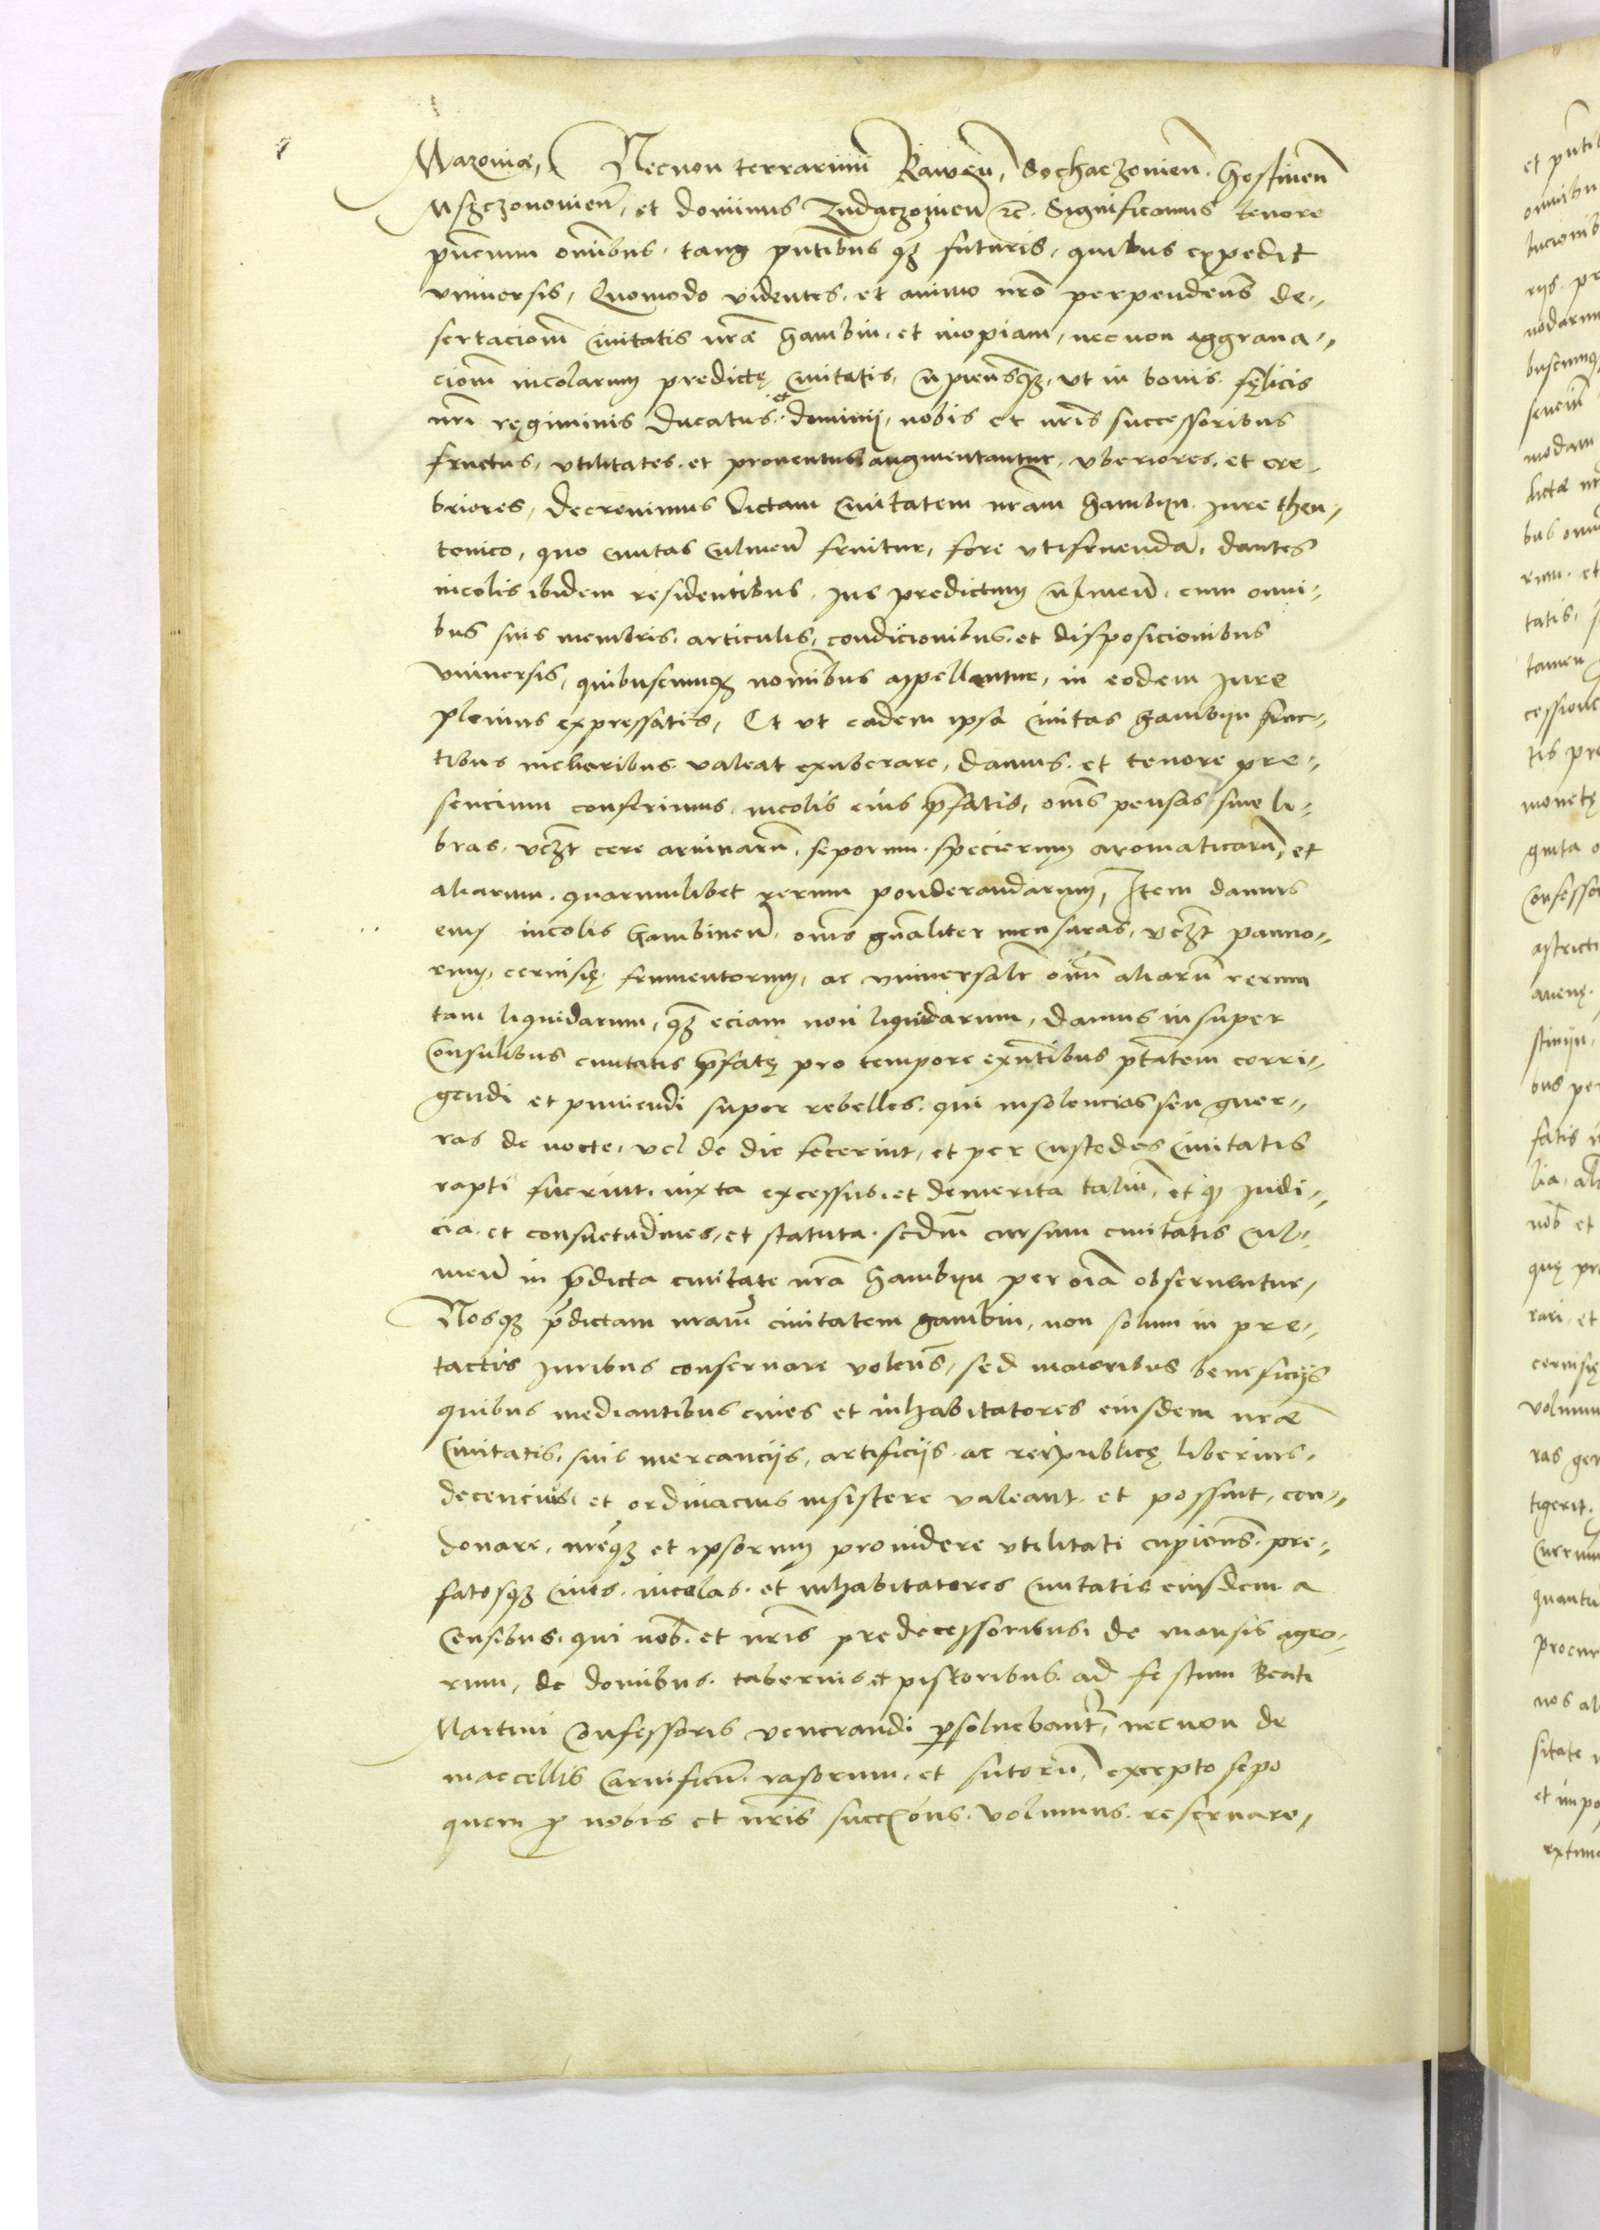 Mazoviæ, Necnon terrarum Rawen̄, Sochaczovien̄. Gostinen̄
Msczczonovien̄, et dominus Zudaczovien̄ ꝛc. Significamus tenore
pn̄cium omībus. tanq̄ pn̄tibus q̄ꝫ futuris, quibus expedit
vniuersis, Quomodo videntes. et animo nr̄o perpendens de-
sertacionē Ciuitatis nr̄æ Gambin. et inopiam, necnon aggraua-
cionē incolarum predictę Ciuitatis, cupiensqꝫ, vt in bonis fęlicis
nr̄i regiminis ducatus et dominij, nobis et nr̄is successoribus
fructus, vtilitates. et prouentus augmentantur, vberiores. et cre-
briores, Decreuimus dictam Ciuitatem nr̄am Gambyn Iure theu-
tonico, quo Ciuitas Culmen̄ fruitur, fore vtifruendā, dantes
incolis ibidem residentibus. Ius predictum Culmen̄. cum omni-
bus suis membris. articulis, condicionibus. et disposicionibus
vniuersis, quibuscumqꝫ nominibus appellantur, in eodem Iure
plenius expressatis, Et vt eadem ipsa Ciuitas Gambyn fruc-
tibus melioribus valeat exuberare, damus. et tenore pre-
sencium conferimus. incolis eius p̄fatis, om̄s pensas siue li-
bras, vcꝫt cere aruinarū, seporum. specierum aromaticarū, et
aliarum. quarumlibet rerum ponderandarum, Item damus
eius incolis Gambinen̄. om̄s gn̄aliter mensuras, vcꝫt panno-
rum, ceruisię, frumentorum, ac vniuersalr̄ om̄ī aliarū rerum
tam liquidarum, q̄ꝫ eciam non liquidarum, damus insuper
Consulibus ciuitatis p̄fatę pro tempore exn̄tibus p̄tatem corri-
gendi et puniendi super rebelles. qui insolencias seu guer-
ras de nocte, vel de die fecerint, et per custodes Ciuitatis
rapti fuerint. iuxta excessus. et demerita taliū, et qꝫ Iudi-
cia. et consuetudines, et statuta. scdm̄ cursum ciuitatis Cul-
men̄ in p̄dicta ciuitate nr̄a Gambyn per oīa obseruentur,
Nosqꝫ p̄dictam nr̄am ciuitatem Gambin, non solum in pre-
tactis Iuribus conseruare volens, sed maioribus beneficijs
quibus mediantibus ciues et inhabitatores eiusdem nr̄æ
Ciuitatis, suis mercancijs, artificijs ac reipublicę liberius.
decencius, et ordinacius insistere valeant. et possint, con-
donare, nr̄eqꝫ et ipsorum prouidere vtilitati cupiens. pre-
fatosqꝫ Ciues. incolas. et inhabitatores Ciuitatis eiusdem a
Censibus. qui nob̄. et nr̄is predecessoribus. de mansis agro-
rum, de domibus. tabernis et pistoribus. ad festum Beati
Martini Confessoris venerandi p̄soluebantr̄, necnon de
maccellis Carnificum. rasorum. et sutorū, excepto sepo
quem ꝓ nobis et nr̄is succ̄on̄s. volumus. reseruare,